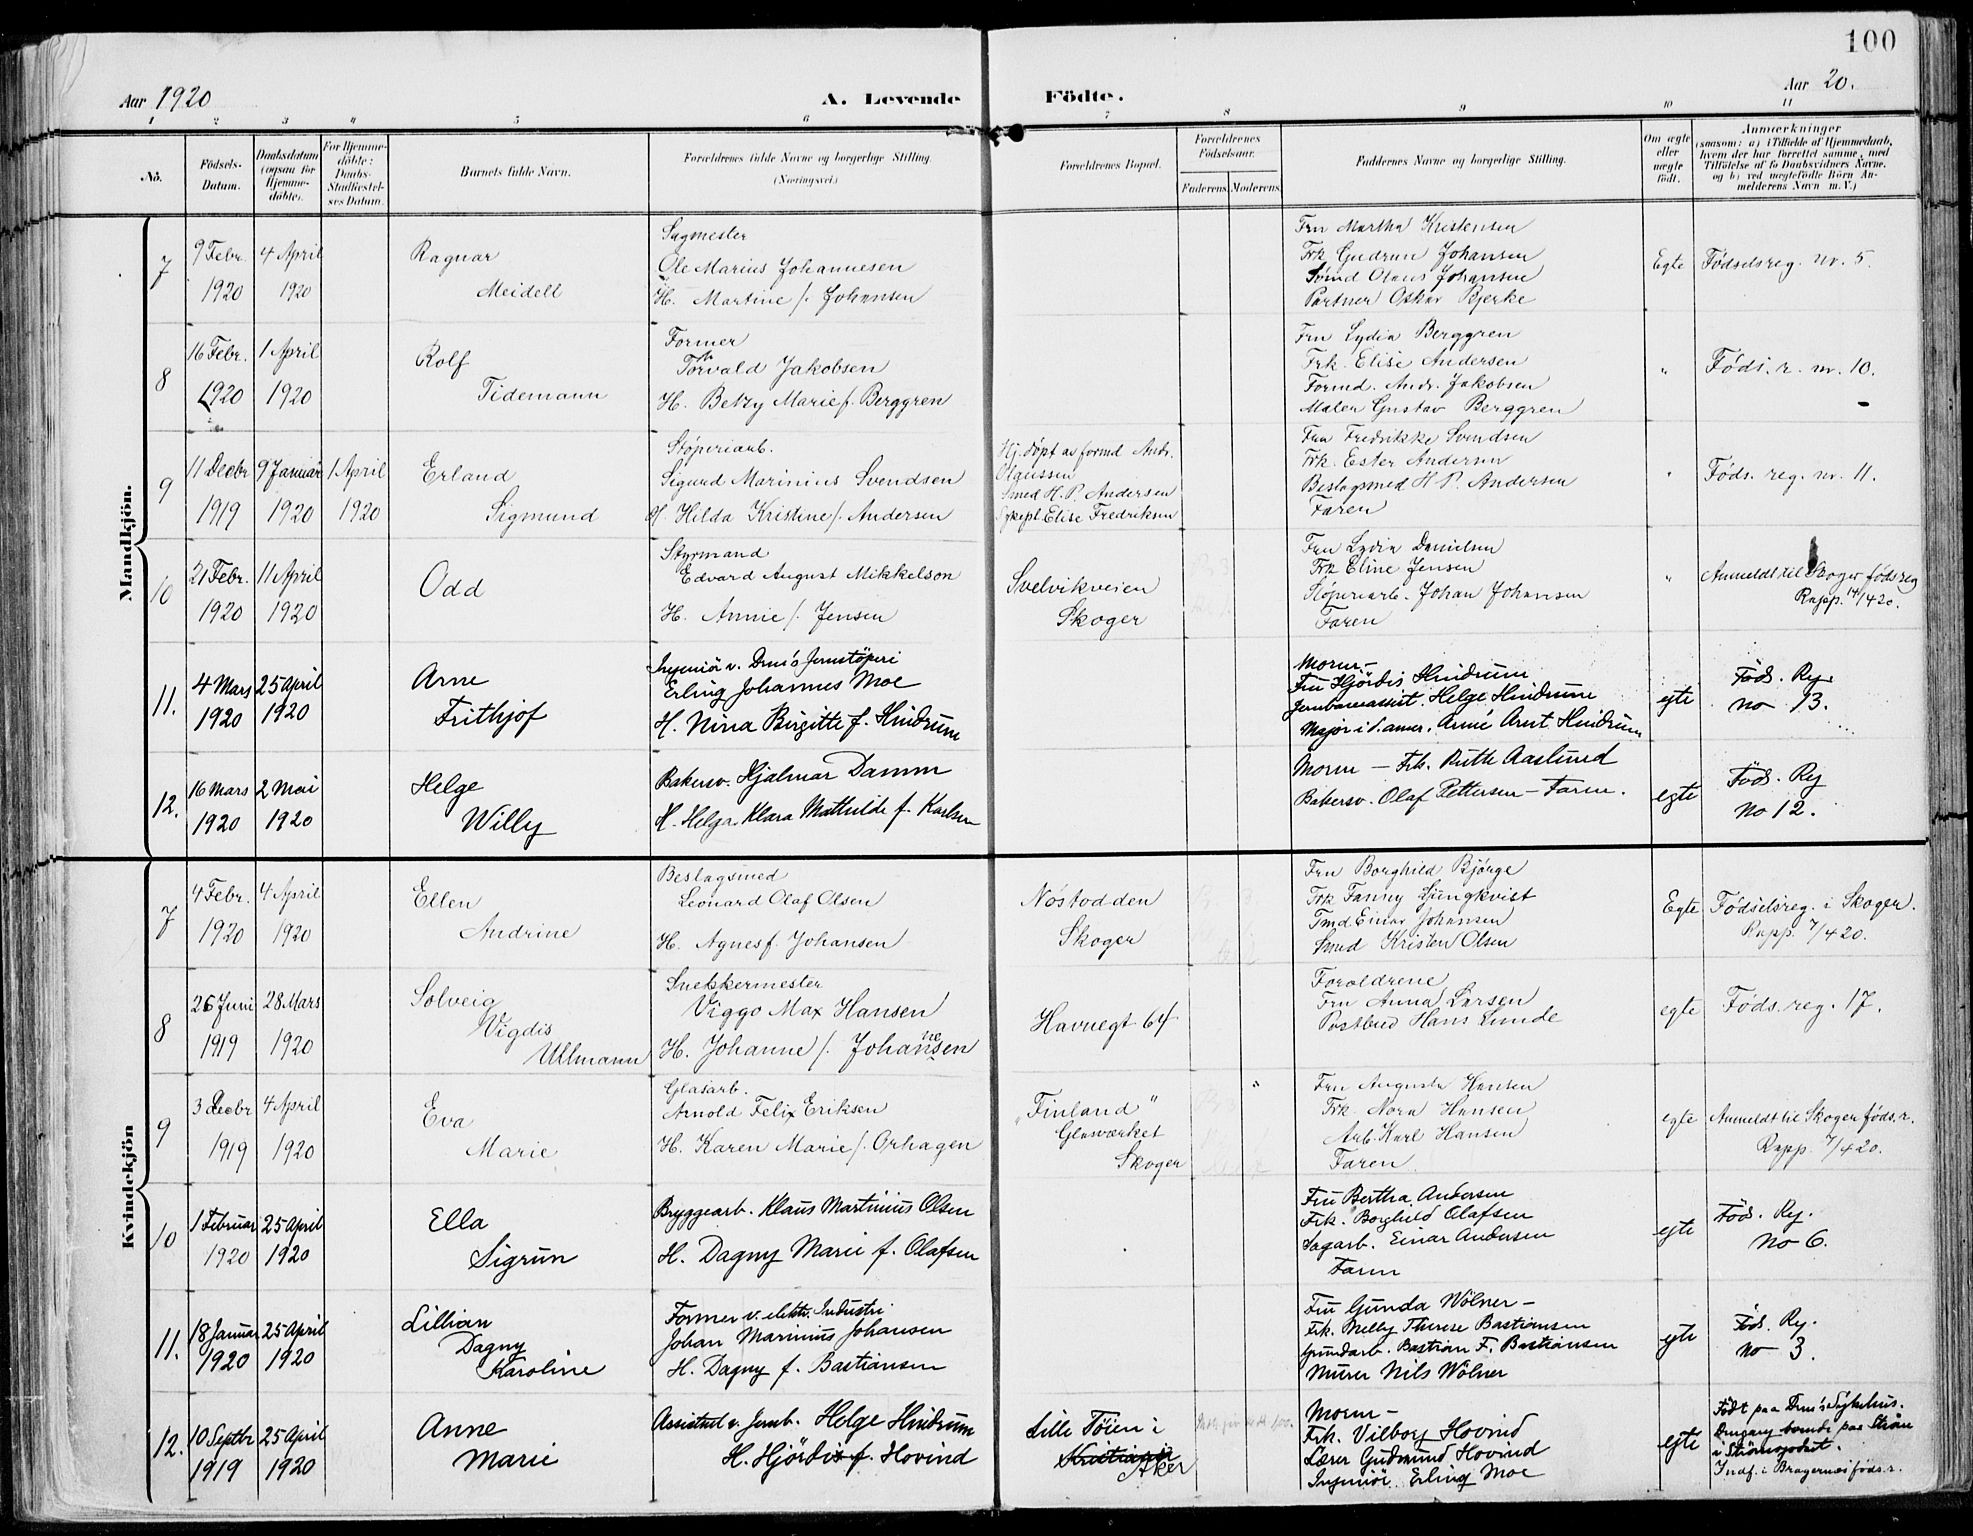 100
Aar 1920
A. Levende
Födte.
Aar 20.
1 2 3 4 5 6 7 8 9 10 11
No.
Födsels-
Datum.
Daabsdatum
(ogsaa for
Hjemme-
døbte).
For Hjemme-
døbte:
Daabs-
Stadfæstel-
ses Datum.
Barnets fulde Navn.
Forældrenes fulde Navne og borgerlige Stilling.
(Næringsvei.)
Forældrenes Bopæl.
Forældrenes
Födselsaar.
Faderens.
Moderens.
Faddernes Navne og borgerlige Stilling.
Om ægte
eller
uægte
født.
Anmærkninger
(saasom: a) i Tilfælde af Hjemmedaab,
hvem der har forrettet samme, med
Tilföielse af to Daabsvidners Navne.
og b) ved uægtefødte Börn An-
melderens Navn m. V.)
Mandkjön.
7
9 Febr.
1920
4 April
1920
Ragnar
Meidell
Sagmester
Ole Marius Johannesen
H. Martine f. Johansen
Fru Martha Kristensen
Frk Gudrun Johansen
Smed Olaus Johansen
Partner Oskar Bjerke
Egte
Fødselsreg. nr. 5.
8
16 Febr.
1920
1 April
1920
Rolf
Tidemann
Former
Torvald Jakobsen
H. Betzy Marie f. Berggren
Fru Lydia Berggren
Frk. Elise Andersen
Formd. Andr. Jakobsen
Maler Gustav Berggren
"
Føds. r. nr. 10.
9
11 Decbr
1919
9 Januar
1920
1 April
1920
Erland
Sigmund
Støperiarb.
Sigurd Marinius Svendsen
H. Hilda Kristine f. Andersen
Hj. døpt av formd Andr.
Olaussen
Smed H. P. Andersen
Sykepl. Elise Fredriksen
Fru Fredrikke Svendsen
Frk. Ester Andersen
Beslagsmed H. P. Andersen
Faren
"
Føds. reg. nr. 11.
10
21 Febr.
1920
11 April
1920
Odd
Styrmand
Edvard August Mikkelson
H. Annie f. Jensen
Svelvikveien
Skoger
Fru Lydia Danielsen
Frk Eline Jensen
Støperiarb. Johan Johansen
Faren
"
Anmeldt til Skoger fødsreg
Rapp. 14/4 20.
11.
4 Mars
1920
25 April
1920
Arne
Frithjof
Ingeniör v. Dms's Jernstöperi
Erling Johannes Moe
H. Nina Birgitte f. Hindrum
Moren -
Fru Hjördis Hindrum
Jernbaneassist. Helge Hindrum
Major i Arne Arnt Hindrum
egte
Föds. Reg.
no 13.
12.
16 Mars
1920
2 Mai
1920
Helge
Willy
Bakersv. Hjalmar Damm
H. Helga Klara Mathilde f. Karlsen
Moren - Frk. Ruth Aaslund
Bakersv. Olaf Pettersen - Faren.
egte
Föds. Reg
No 12.
Kvindekjön
7
4 Febr.
1920
4 April
1920
Ellen
Andrine
Beslagsmed
Leonard Olaf Olsen
H. Agnes f. Johansen
Nöstodden
Skoger
Fru Borghild Bjørge
Frk Fanny Ljungkvist
Tmd Einar Johansen
Smed Kristen Olsen
Egte
Fødselsreg. i Skoger.
Rapp. 7/4 20.
8
26 Juni
1919
28 Mars
1920
Solveig
Vigdis
Ullmann
Snekkermester
Viggo Max Hansen
H. Johanne f. Johannesen
Havnegt 64
Foroldrene
Fru Anna Larsen
Postbud Hans Lunde
egte
Føds. reg. 17.
9
3 Decbr
1919
4 April
1920
Eva
Marie
Glasarb.
Arnold Felix Eriksen
H. Karen Marie f. Orhagen
"Finland"
Glasværket
Skoger
"
Fru Augusta Hansen
Frk. Nora Hansen
Arb. Karl Hansen
Faren
egte
Anmeldt til Skoger føds. r.
Rapp. 7/4 20.
10
1 Februar
1920
25 April
1920
Ella
Sigrun
Bryggearb. Klaus Martinius Olsen
H. Dagny Marie f. Olafsen
Fru Bertha Andersen
Frk. Borghild Olafsen
Sagarb. Einar Andersen
Faren
egte
Föds. Reg.
No 6.
11.
18 Januar
1920
25 April
1920
Lillian
Dagny
Karoline
Former v. elektr. Industri
Johan Marinius Johansen
H. Dagny f. Bastiansen
Fru Gunda Wölner -
Frk. Melly Therese Bastiansen
Grundarb. Bastian F. Bastiansen
Murer Nils Wölner
egte
Föds. Reg.
no 3.
12.
10 Septbr
1919
25 April
1920
Anne
Marie
Assistent v. Jernb. Helge Hindrum
H. Hjördis f. Hovind
Lille Töien i
Kristiania
Aker
Moren -
Frk. Vilborg Hovind
Lærer Gudmund Hovind
Ingeniör Erling Moe
egte
Födt paa Dms's Sykehus.
paa Ström
i Strömsgodset.
Indf. i Bragernæs føds. r.